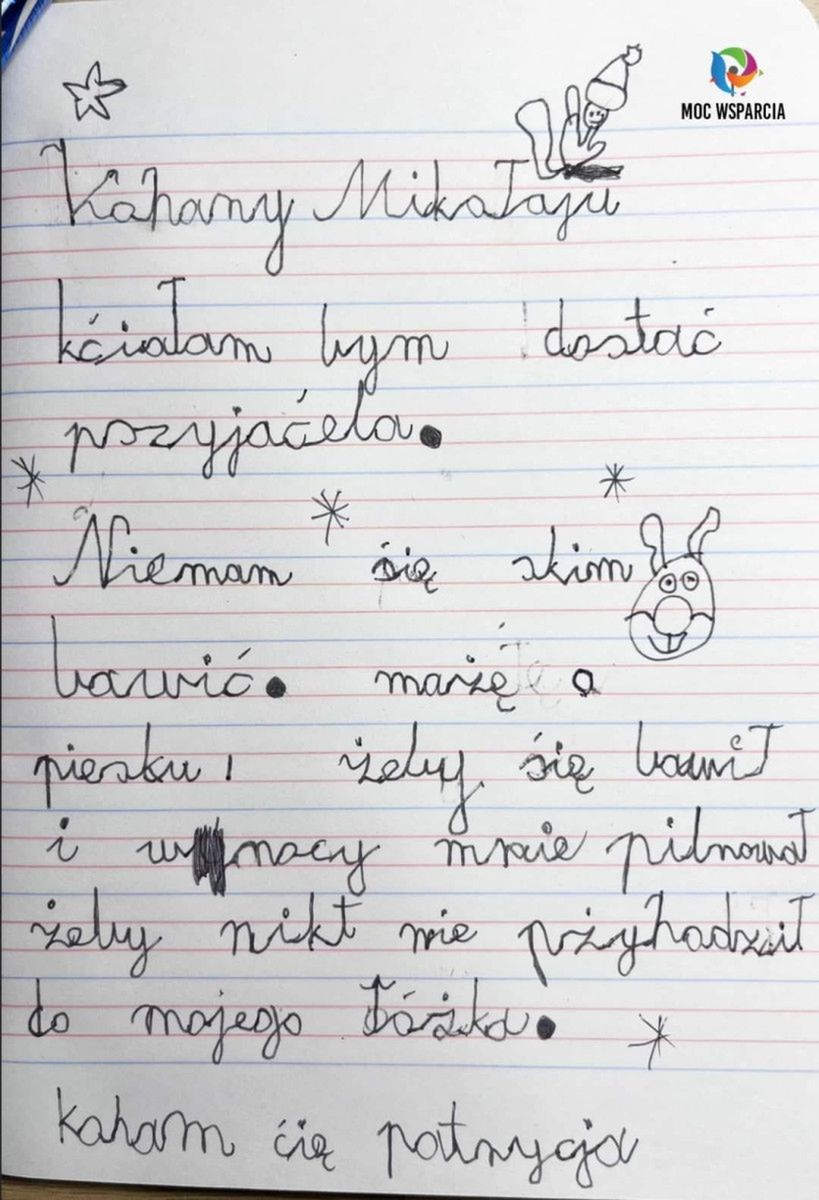 MOC WSPARCIA
Kahany Mikołaju
kćiałam bym dostać
pszyjaćela.
Niemam się zkim
bawić. marzę o
piesku, żeby się bawił
i w nocy mnie pilnował
żeby nikt nie pżyhodził
do mojego łóżka.
kaham ćię patrycja